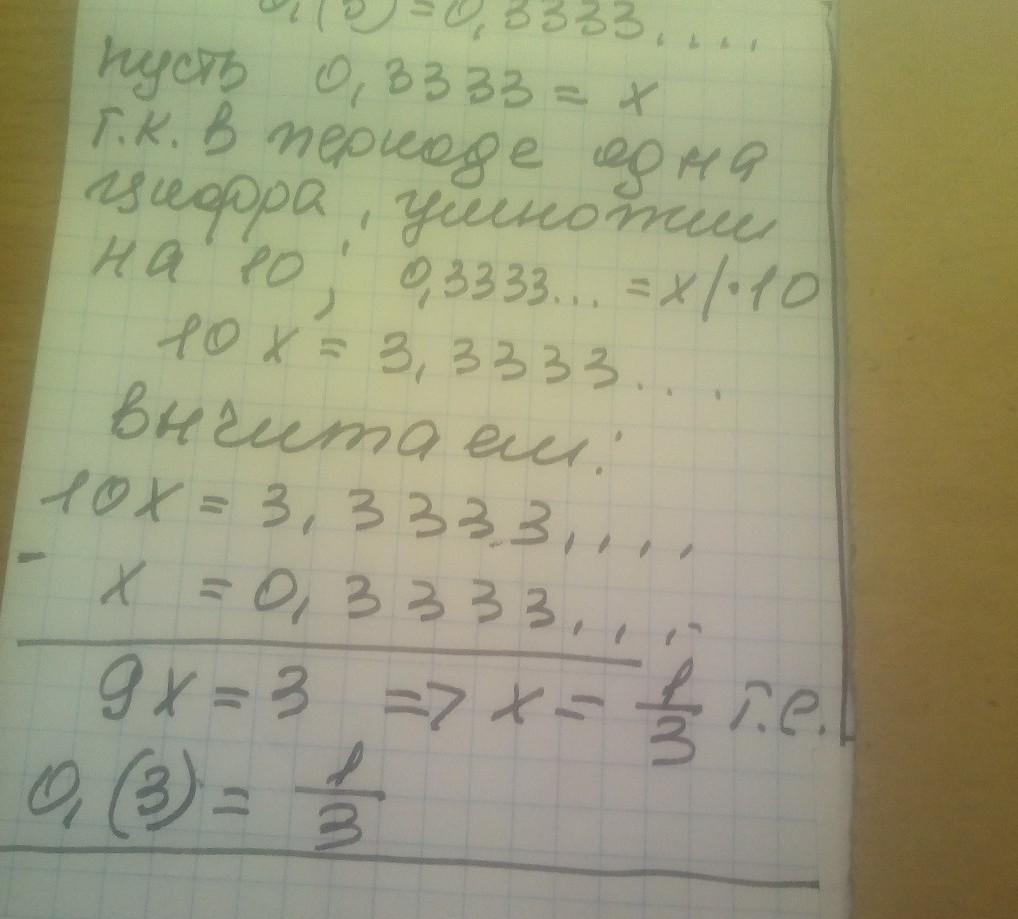 0,(3) = 0,3333....
пусть 0,3333 = x
т.к. в периоде одна
цифра, умножим
на 10; 0,3333... = x/·10
10 x = 3,3333...
вычитаем:
10x = 3,3333....
- x = 0,3333....
9x = 3 => x = 1/3 т.е.
0,(3) = 1/3